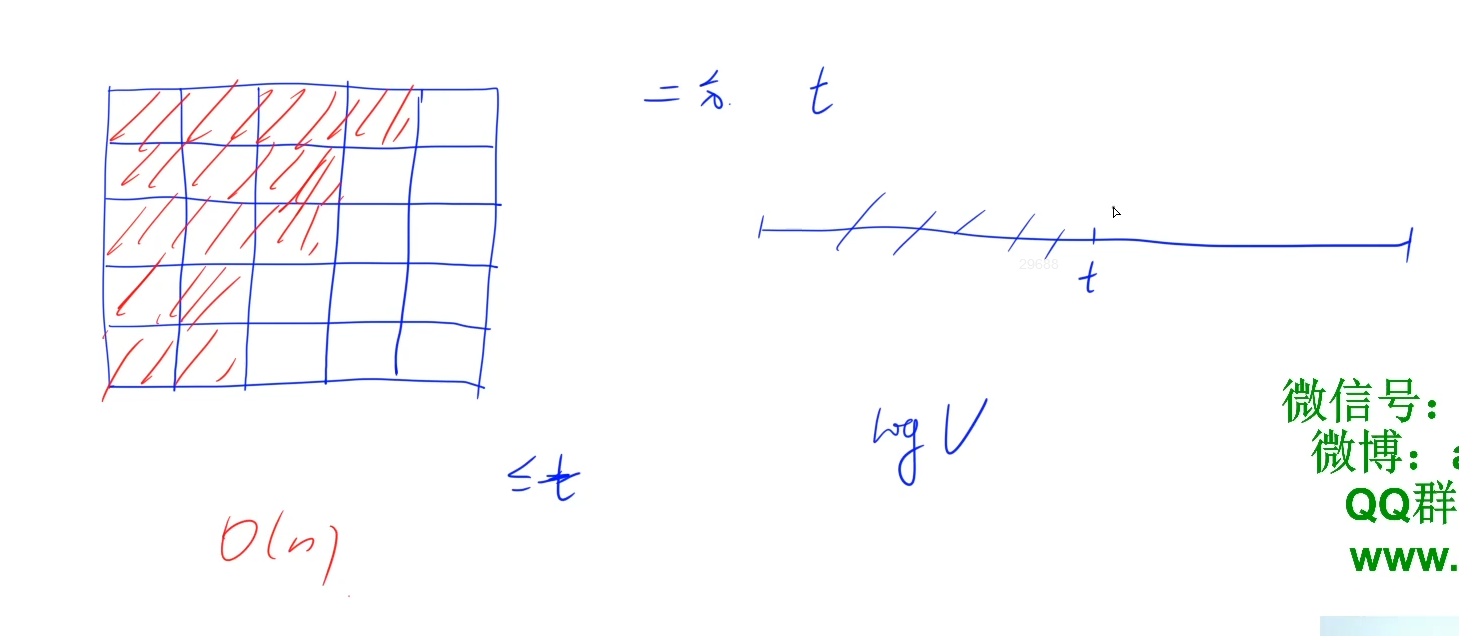 =分. t
29668
t
log V
≤t
O(n)
微信号：
微博：a
QQ群
www.